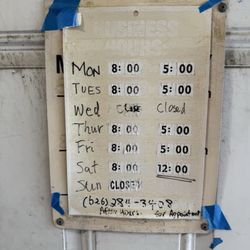 BUSINESS
HOURS
MON 8:00 5:00
TUES 8:00 5:00
Wed Close Closed
Thur 8:00 5:00
Fri 8:00 5:00
Sat 8:00 12:00
Sun CLOSED
(626) 284-3408
After Hours for Appointment